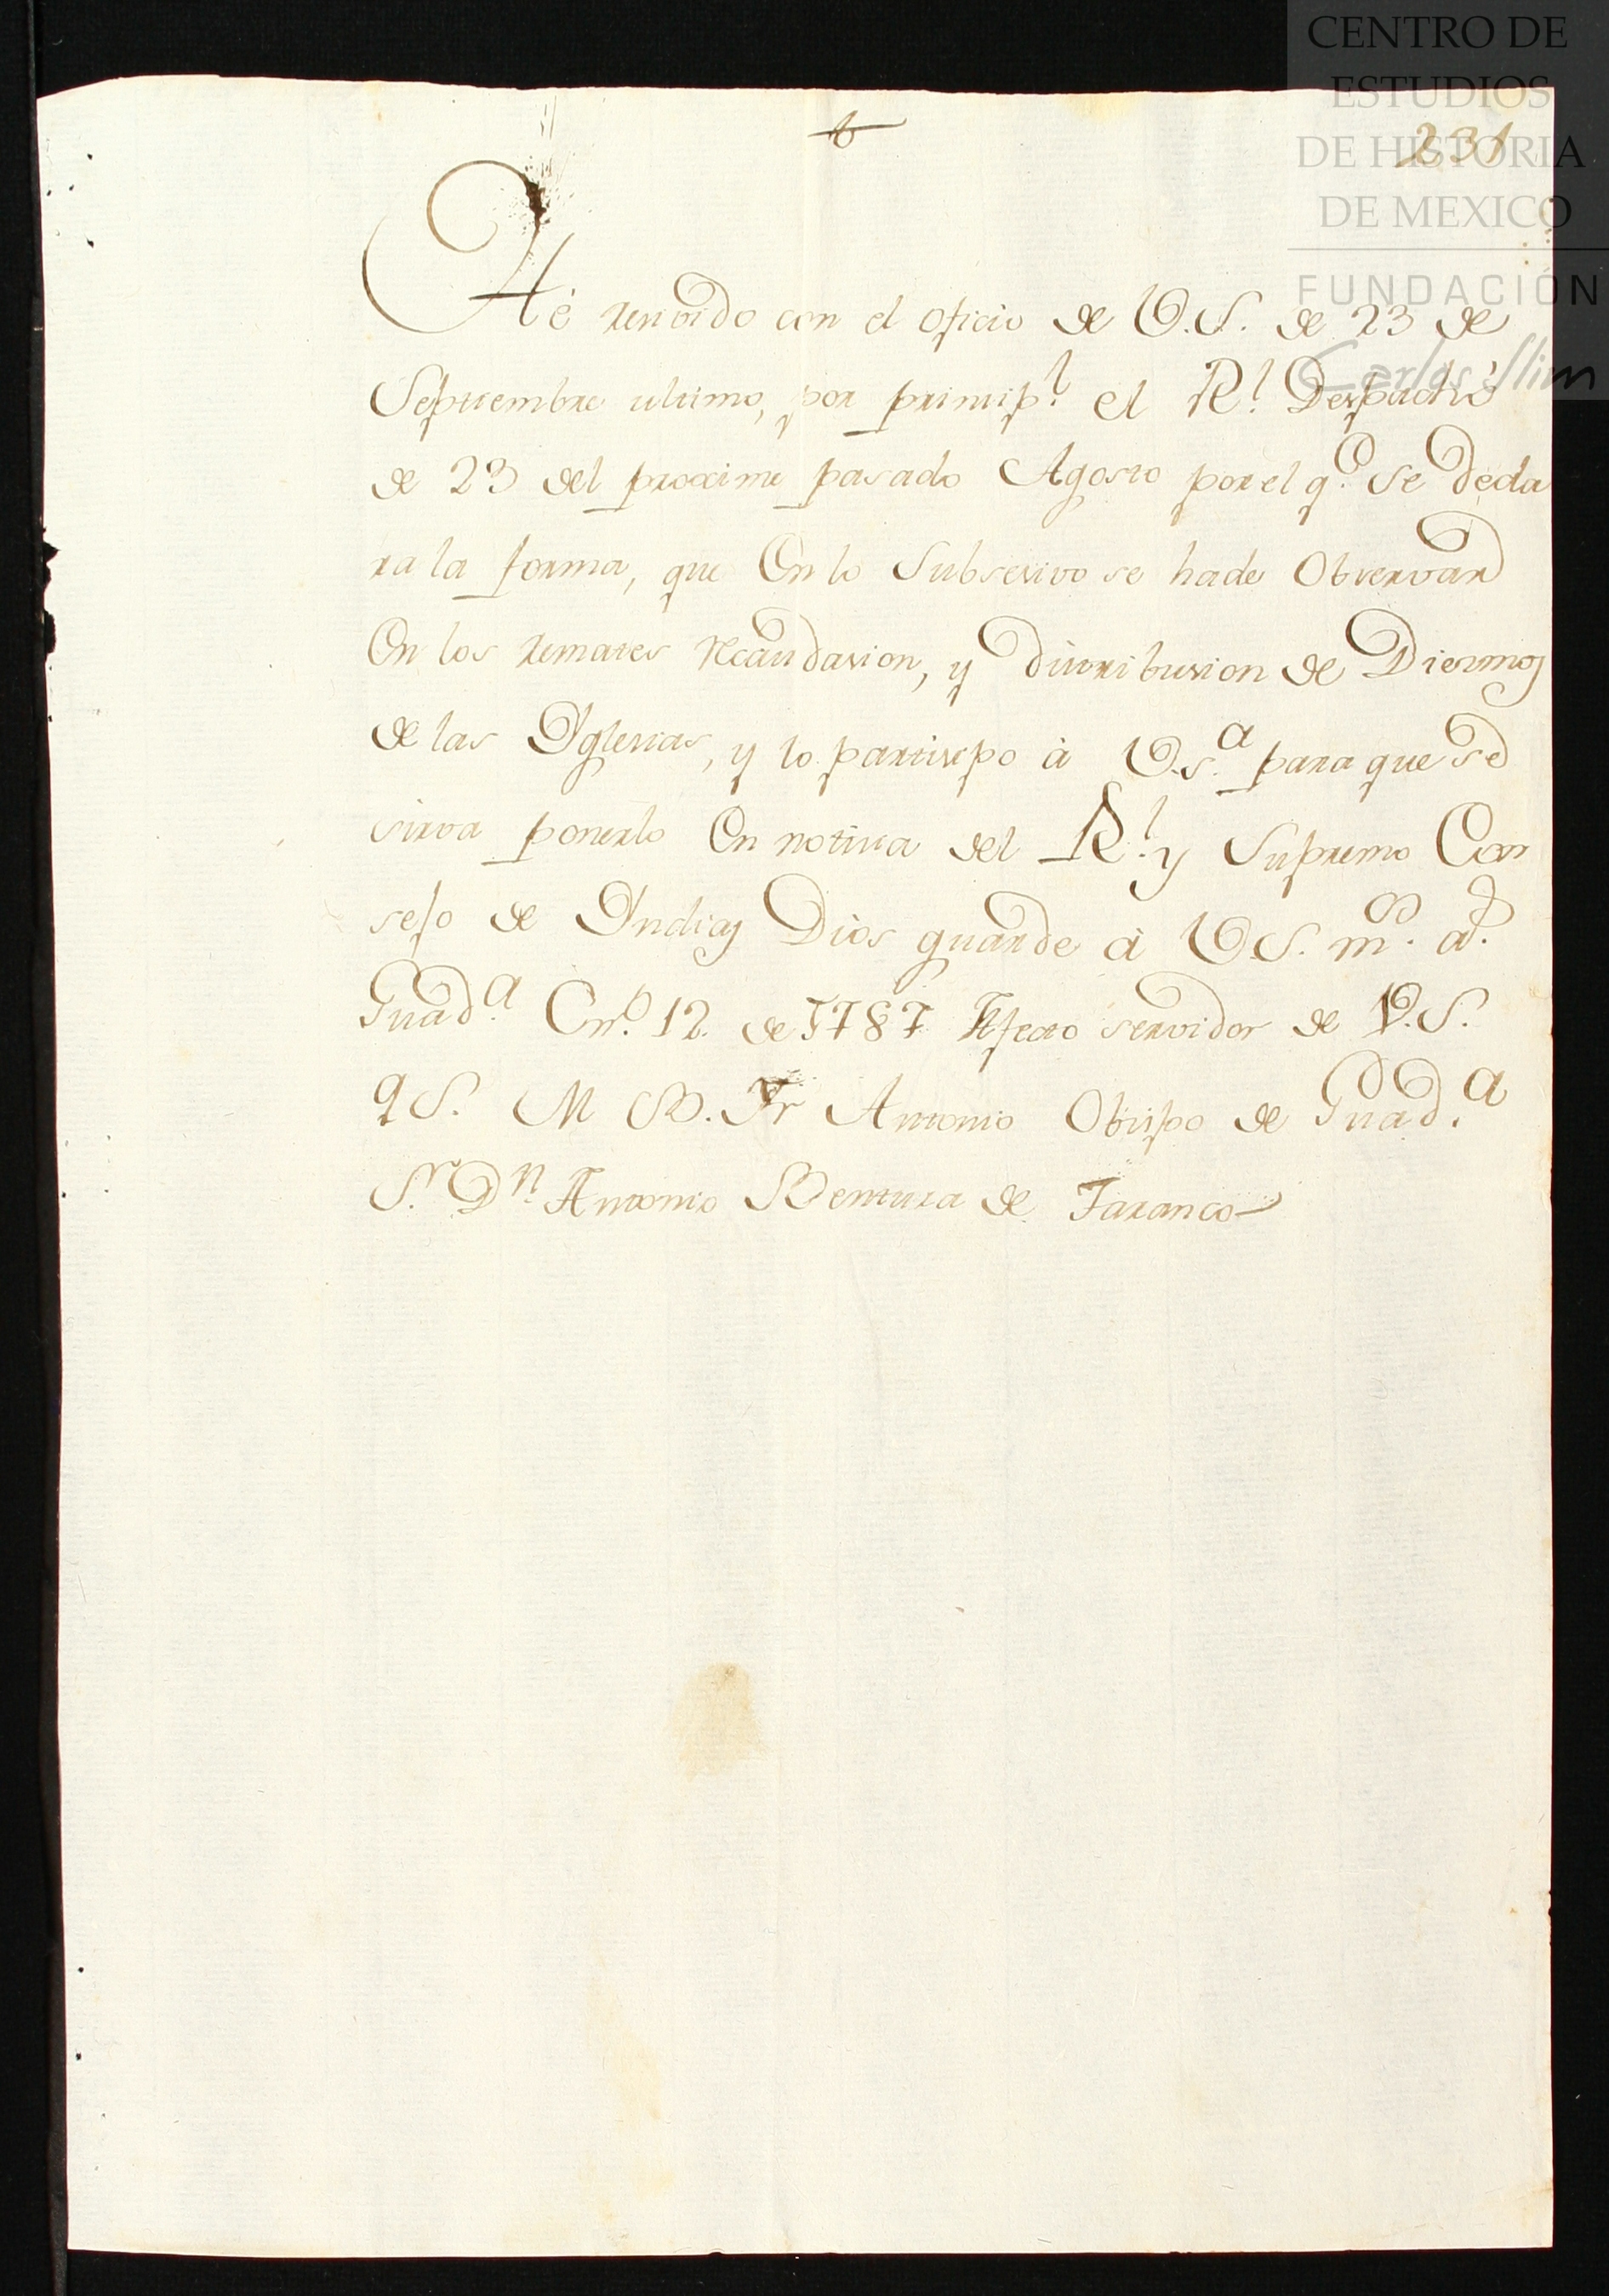 CENTRO DE
ESTUDIOS
DE HISTORIA
DE MEXICO
FUNDACIÓN
Carlos Slim
231
Hé resivido con el oficio de V.S. de 23 de
Septiembre ultimo, por prinsip.l el R.l Despacho
de 23 del proximo pasado Agosto por el q.e se decla
ra la forma, que En lo Subsesivo se hade Observar
En los remates recaudasion, y distribusion de Diezmos
de las Yglesias, y lo partisipo à V.S.a para que se
sirva ponerlo En notisia del R.l y Supremo Con
sejo de Yndias Dios guarde à V.S. m.s a.s
Guad.a En.o 12. de 1787 Afecto servidor de V.S.
q S. M B. Fr Antonio Obispo de Guad.a
S.r D.n Antonio Bentura de Taranco